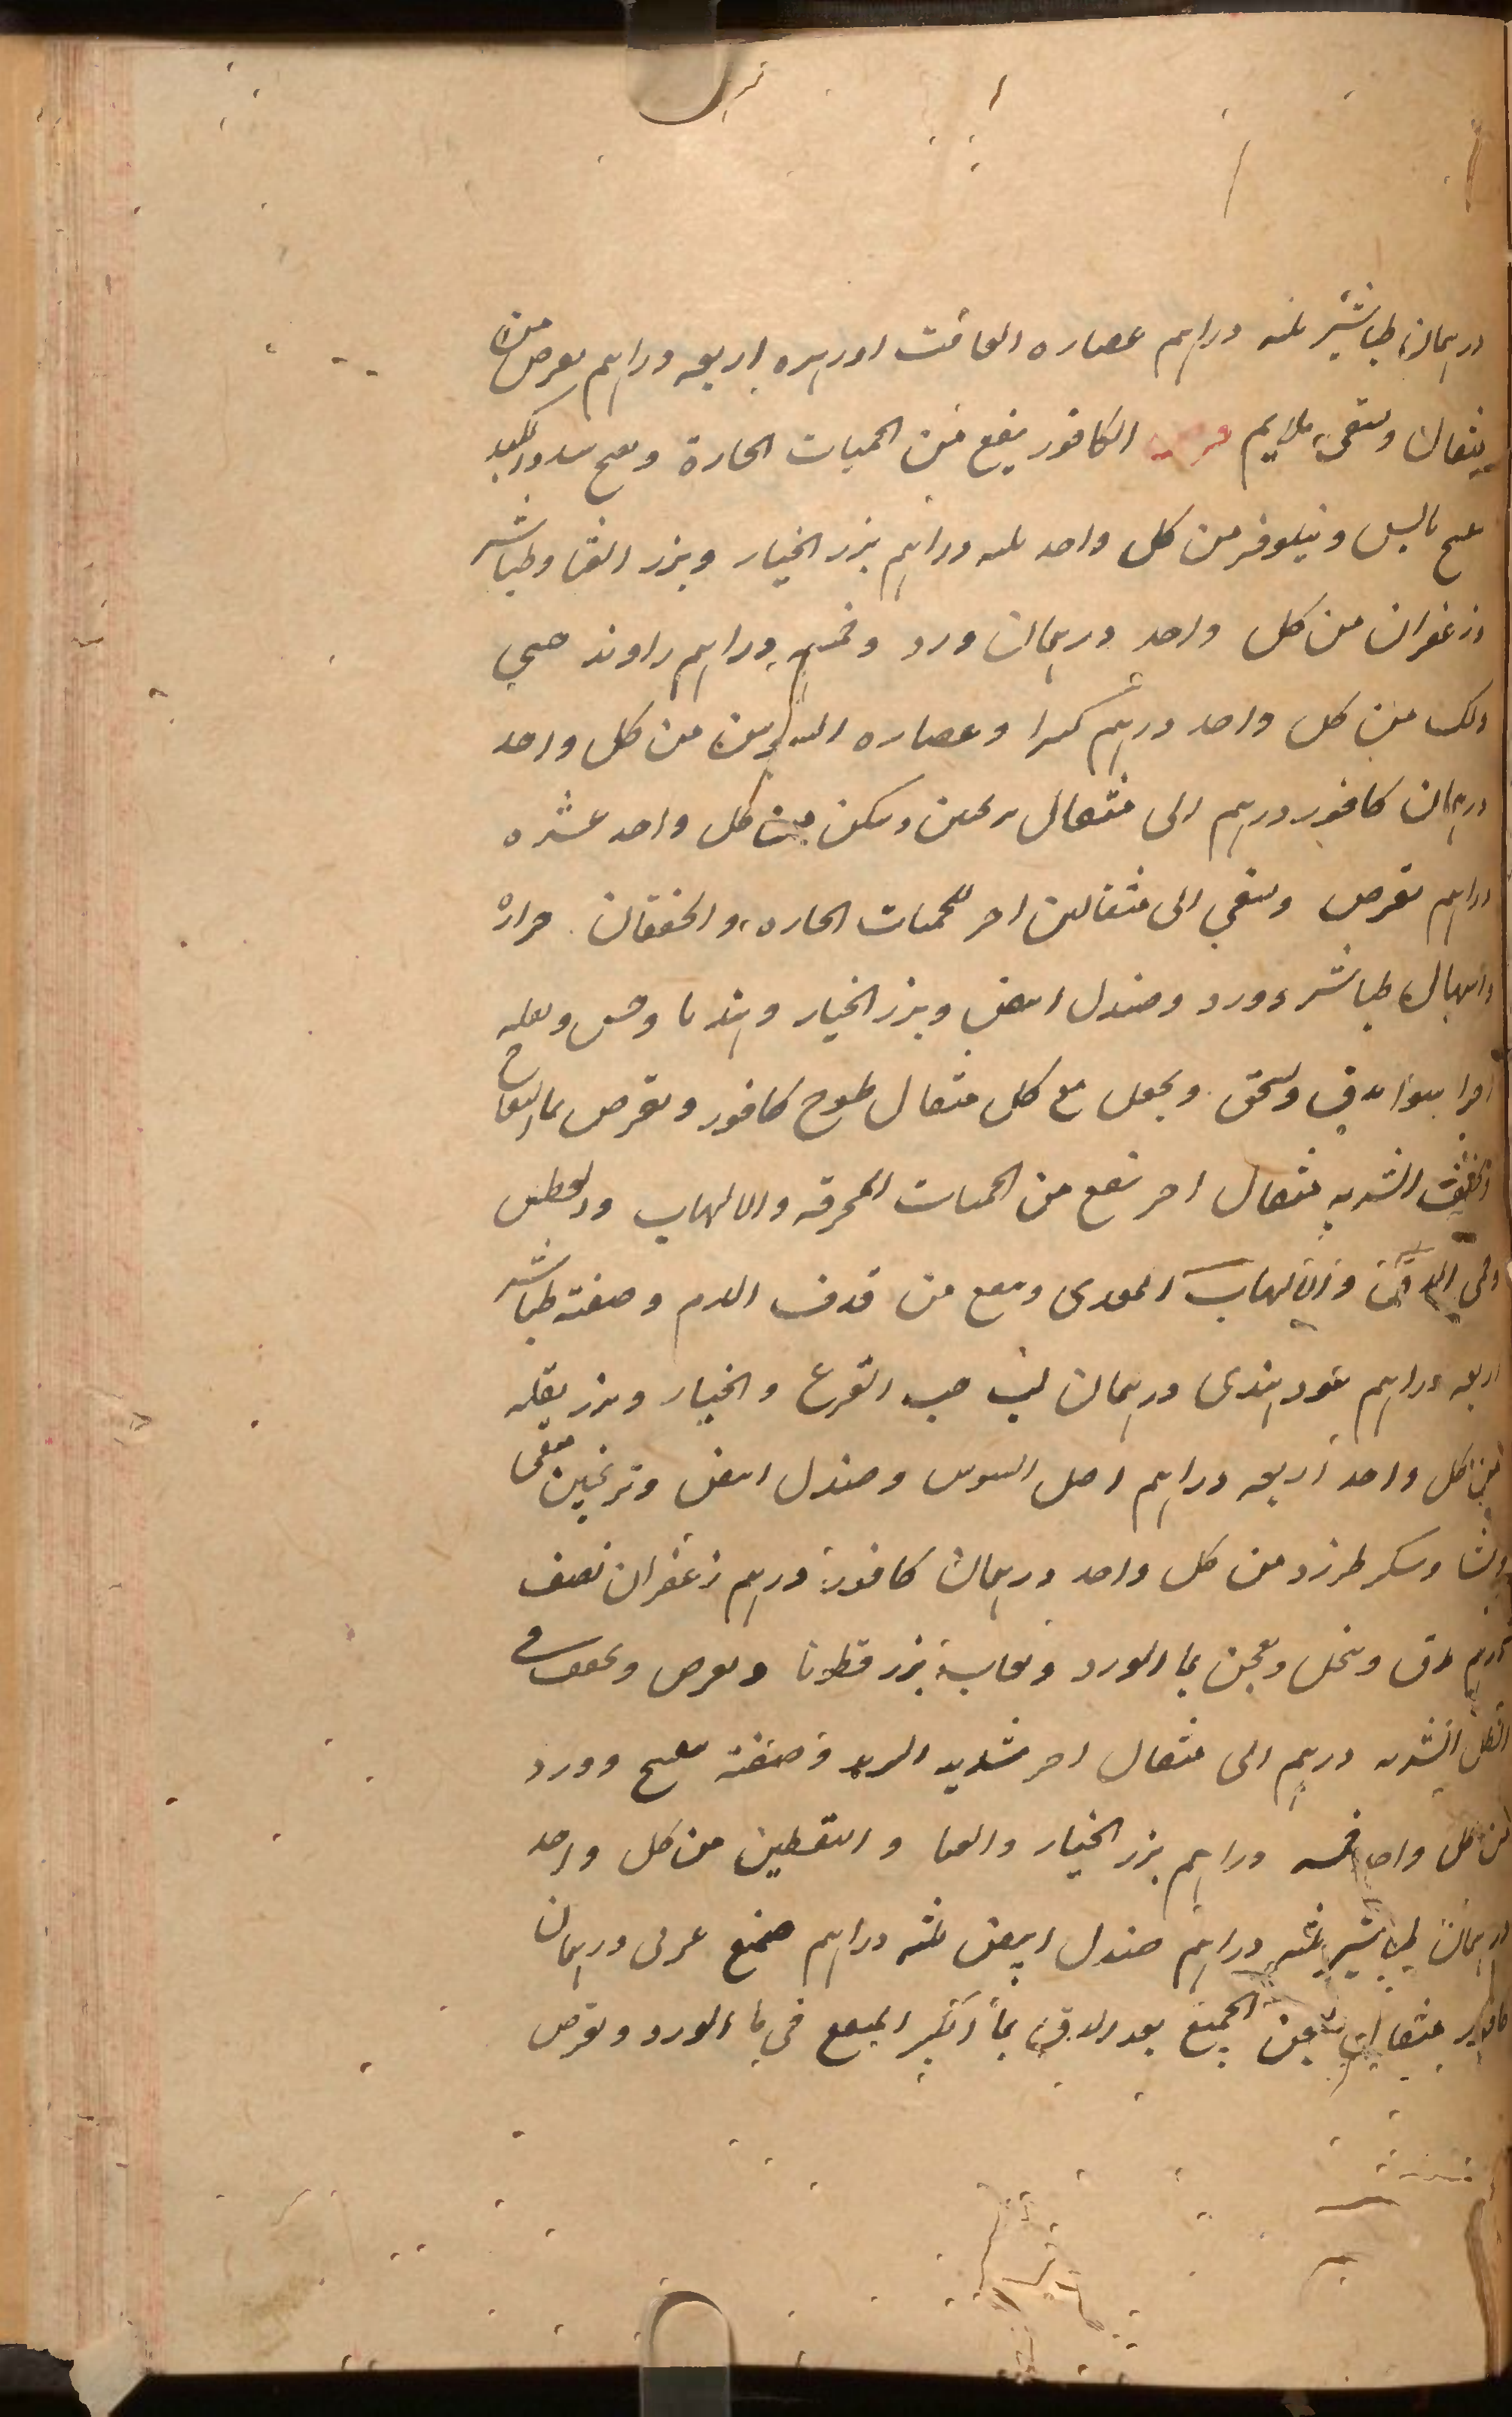 درهمان طباشير ثلثه دراهم عصاره الغافت اوزهره اربعه دراهم يقرص من
مثقال ويسقى بملايم قرص الكافور ينفع من الحميات الحارة ويفتح سدد الكبد
بنفسج يابس ونيلوفر من كل واحد ثلثه دراهم بزر الخيار وبزر القثا وطباشير
وزعفران من كل واحد درهمان ورد وخمسه دراهم راوند صيني
ولك من كل واحد درهم كثيرا وعصاره السوس من كل واحد
درهمان كافور درهم الى مثقال ترنجبين وسكر من كل واحد عشره
دراهم يقرص ويسقى الى مثقالين اخر للحميات الحاره والخفقان حرارة
واسهال طباشير وورد وصندل ابيض وبزر الخيار وهندبا وخس وبقله
اجزا سوا يدق ويسحق ويجعل مع كل مثقال طسوج كافور ويقرص بما التفاح
الشربه مثقال اخر ينفع من الحميات المحرقه والالتهاب والعطش
وحمى الدق والالتهاب المعدى وينفع من قذف الدم وصفته طباشير
اربعه دراهم عود هندى درهمان لب حب القرع والخيار وبزر بقله
من كل واحد اربعه دراهم اصل السوس وصندل ابيض وترنجبين منقى
ونشا وسكر طبرزد من كل واحد درهمان كافور درهم زعفران نصف
درهم يدق وينخل ويعجن بما الورد ولعاب بزر قطونا ويقرص ويجفف في
الظل الشربه درهم الى مثقال اخر شديد البرد وصفته بنفسج وورد
من كل واحد خمسه دراهم بزر الخيار والقثا واليقطين من كل واحد
درهمان طباشير ثلثه دراهم صندل ابيض ثلثه دراهم صمغ عربى درهمان
كافور مثقال يعجن الجميع بعد الدق بما الكثيرا المنقع في ما الورد ويقرص